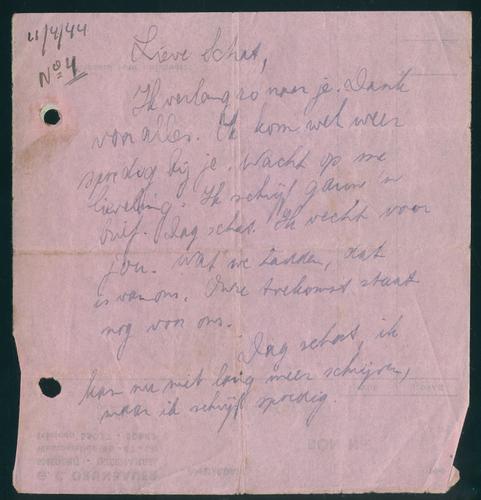 4/4/44
No 4
Lieve Schat,
Ik verlang zo naar je. Dank
voor alles. Ik kom wel weer
spoedig bij je. Wacht op me
lieveling. Ik schrijf gauw 'n
brief. Dag schat. Ik vecht voor
jou. Wat we hadden, dat
is van ons. Onze toekomst staat
nog voor ons.
Dag schat, ik
kan nu niet lang meer schrijven,
maar ik schrijf spoedig.